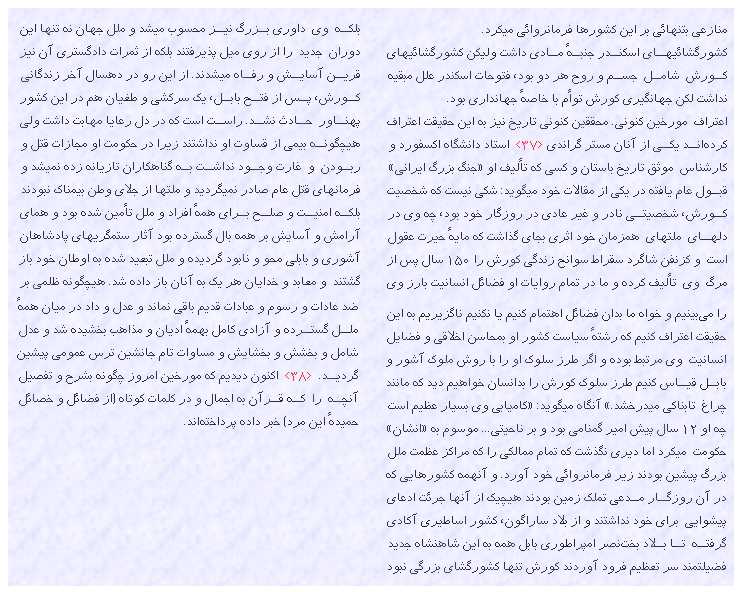 منازعی بتنهائی بر این کشورها فرمانروائی میکرد.
کشورگشائیهای اسکندر جنبهٔ مادی داشت ولیکن کشورگشائیهای
کورش شامل جسم و روح هر دو بود، فتوحات اسکندر علل مبقیه
نداشت لکن جهانگیری کورش توأم با خاصهٔ جهانداری بود.
اعتراف مورخین کنونی. محققین کنونی تاریخ نیز به این حقیقت اعتراف
کرده‌اند یکی از آنان مستر گراندی <۳۷> استاد دانشگاه اکسفورد و
کارشناس موثق تاریخ باستان و کسی که تألیف او «جنگ بزرگ ایرانی»
قبول عام یافته در یکی از مقالات خود میگوید: شکی نیست که شخصیت
کورش، شخصیتی نادر و غیر عادی در روزگار خود بود، چه وی در
دلهای ملتهای همزمان خود اثری بجای گذاشت که مایهٔ حیرت عقول
است و کزنفن شاگرد سقراط سوانح زندگی کورش را ۱۵۰ سال پس از
مرگ وی تألیف کرده و ما در تمام روایات او فضائل انسانیت بارز وی
را می‌بینیم و خواه ما بدان فضائل اهتمام کنیم یا نکنیم ناگزیریم به این
حقیقت اعتراف کنیم که رشتهٔ سیاست کشور او بمحاسن اخلاقی و فضایل
انسانیت وی مرتبط بوده و اگر طرز سلوک او را با روش ملوک آشور و
بابل قیاس کنیم طرز سلوک کورش را بدانسان خواهیم دید که مانند
چراغ تابناکی میدرخشد.» آنگاه میگوید: «کامیابی وی بسیار عظیم است
چه او ۱۲ سال پیش امیر گمنامی بود و بر ناحیتی... موسوم به «انشان»
حکومت میکرد اما دیری نگذشت که تمام ممالکی را که مراکز عظمت ملل
بزرگ پیشین بودند زیر فرمانروائی خود آورد. و آنهمه کشورهایی که
در آن روزگار مدعی تملک زمین بودند هیچیک از آنها جرئت ادعای
پیشوایی برای خود نداشتند و از بلاد ساراگون، کشور اساطیری آکادی
گرفته تا بلاد بخت‌نصر امپراطوری بابل همه به این شاهنشاه جدید
فضیلتمند سر تعظیم فرود آوردند کورش تنها کشورگشای بزرگی نبود
بلکه وی داوری بزرگ نیز محسوب میشد و ملل جهان نه تنها این
دوران جدید را از روی میل پذیرفتند بلکه از ثمرات دادگستری آن نیز
قرین آسایش و رفاه میشدند. از این رو در دهسال آخر زندگانی
کورش، پس از فتح بابل، یک سرکشی و طغیان هم در این کشور
پهناور حادث نشد. راست است که در دل رعایا مهابت داشت ولی
هیچگونه بیمی از قساوت او نداشتند زیرا در حکومت او مجازات قتل و
ربودن و غارت وجود نداشت به گناهکاران تازیانه زده نمیشد و
فرمانهای قتل عام صادر نمیگردید و ملتها از جلای وطن بیمناک نبودند
بلکه امنیت و صلح برای همهٔ افراد و ملل تأمین شده بود و همای
آرامش و آسایش بر همه بال گسترده بود آثار ستمگریهای پادشاهان
آشوری و بابلی محو و نابود گردیده و ملل تبعید شده به اوطان خود باز
گشتند و معابد و خدایان هر یک به آنان باز داده شد. هیچگونه ظلمی بر
ضد عادات و رسوم و عبادات قدیم باقی نماند و عدل و داد در میان همهٔ
ملل گسترده و آزادی کامل بهمهٔ ادیان و مذاهب بخشیده شد و عدل
شامل و بخشش و بخشایش و مساوات تام جانشین ترس عمومی پیشین
گردید. <۳۸> اکنون دیدیم که مورخین امروز چگونه بشرح و تفصیل
آنچه را که قرآن به اجمال و در کلمات کوتاه (از فضائل و خصائل
حمیدهٔ این مرد) خبر داده پرداخته‌اند.